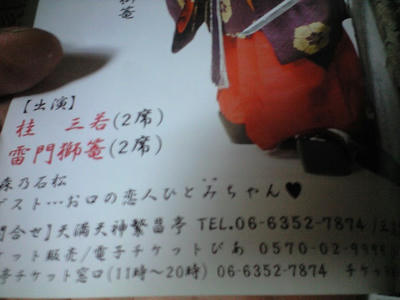 獅菴
【出演】
桂 三若(2席)
雷門獅篭(2席)
森乃石松
ゲスト…お口の恋人ひとみちゃん♥
問合せ】天満天神繁昌亭 TEL.06-6352-7874/
ケット販売/電子チケットぴあ 0570-02-9999
亭チケット窓口(11時〜20時) 06-6352-7874 チケ